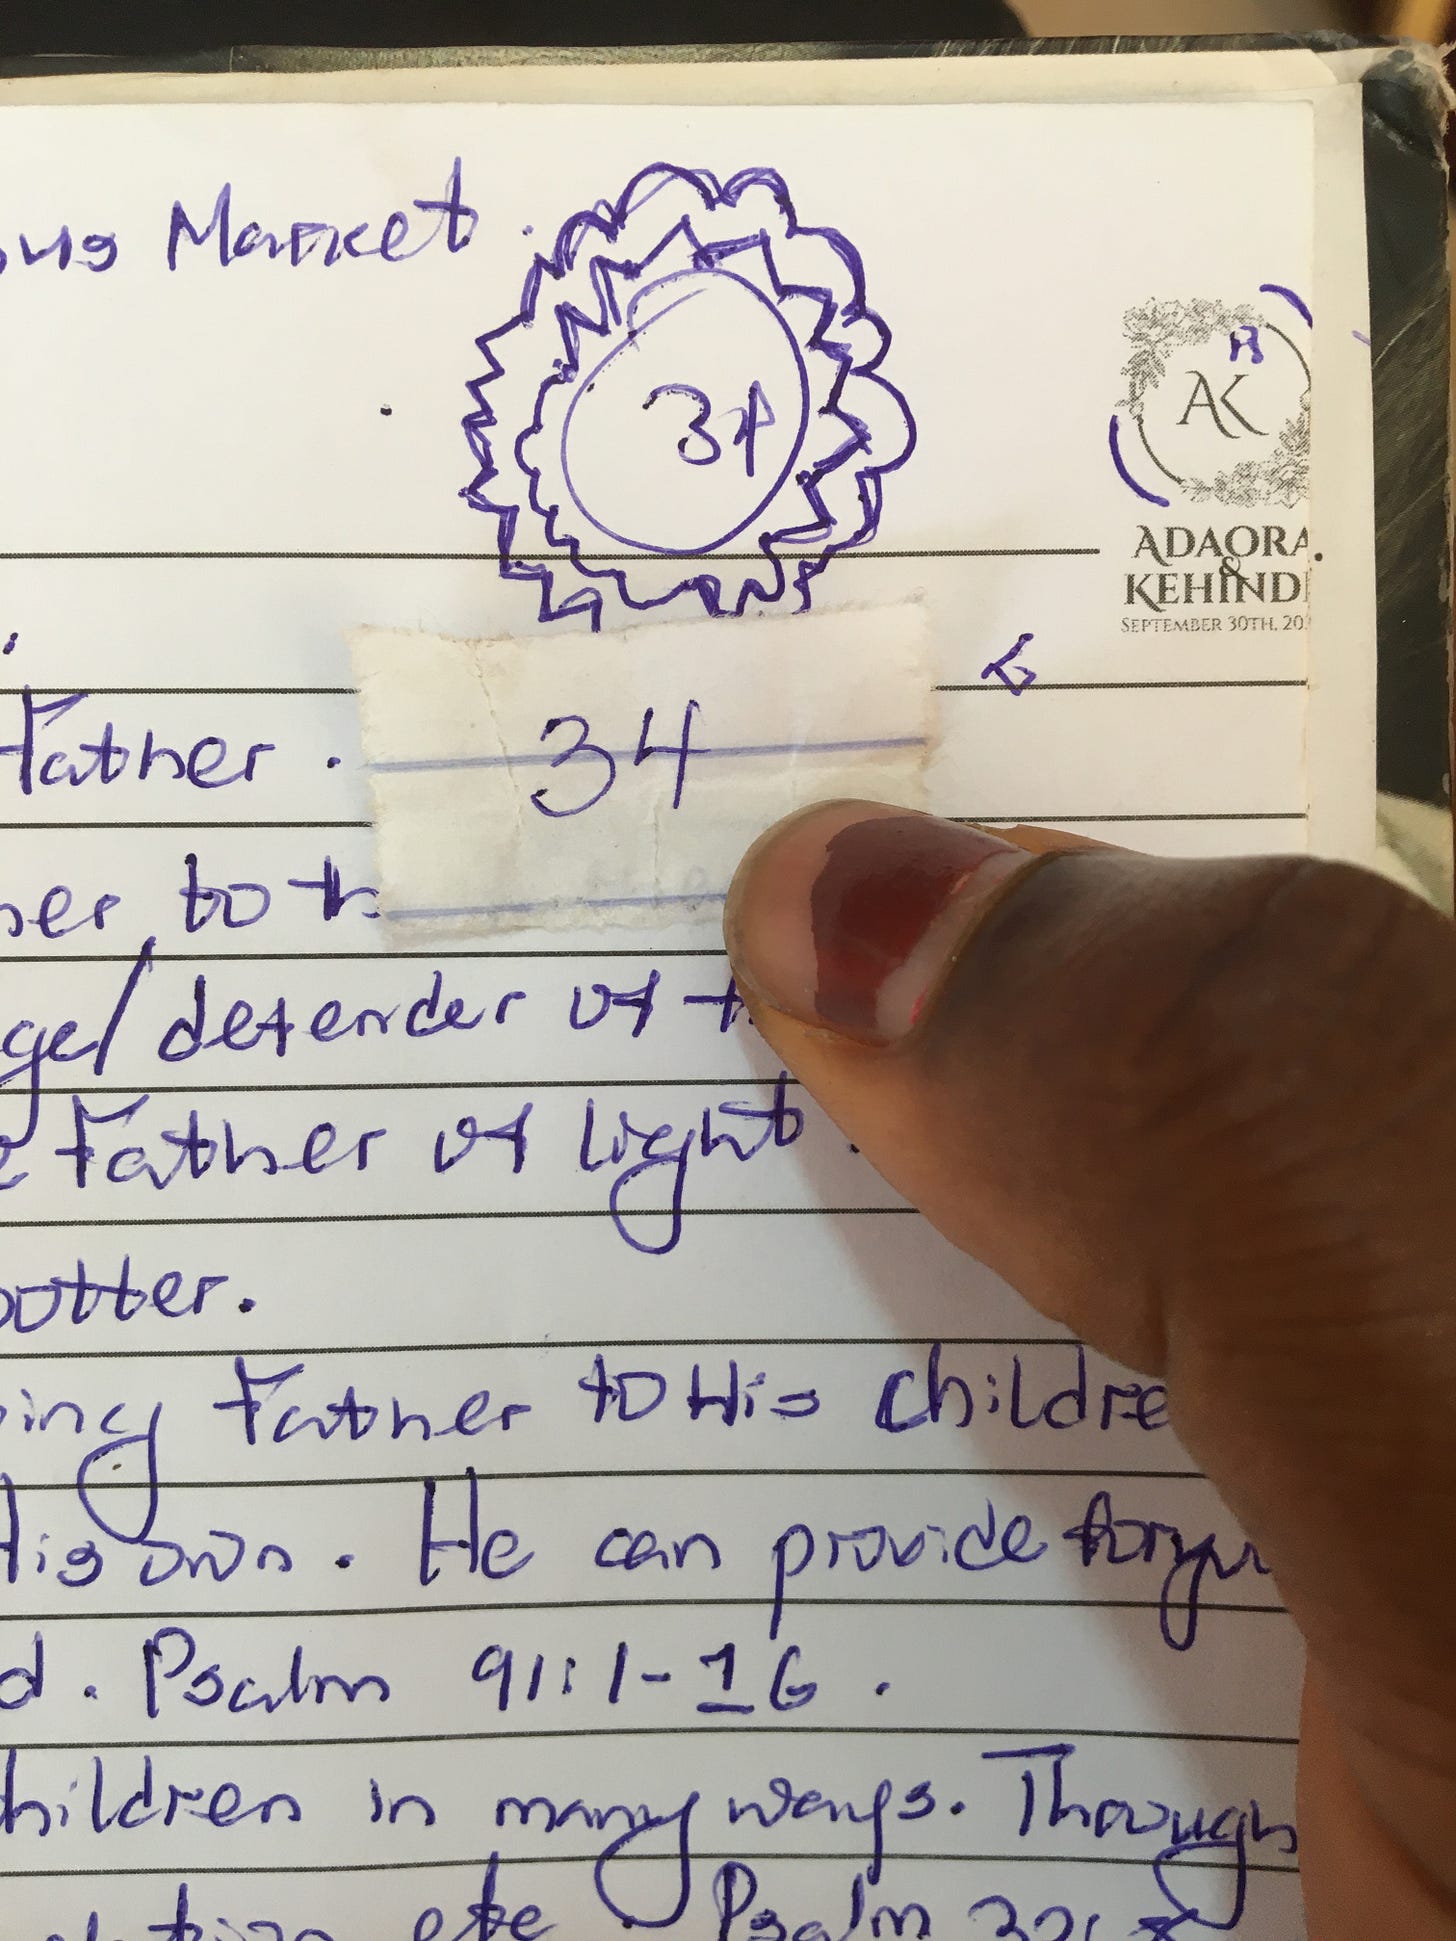 Market.
34
AK
ADAORA
&
KEHIND
SEPTEMBER 30TH, 20
34
Father.
to th
defender of t
Father of light.
otter.
ing Father to His childre
His own. He can provide
d. Psalm 91:1-16.
hildren in many ways. Through
etc. Psalm